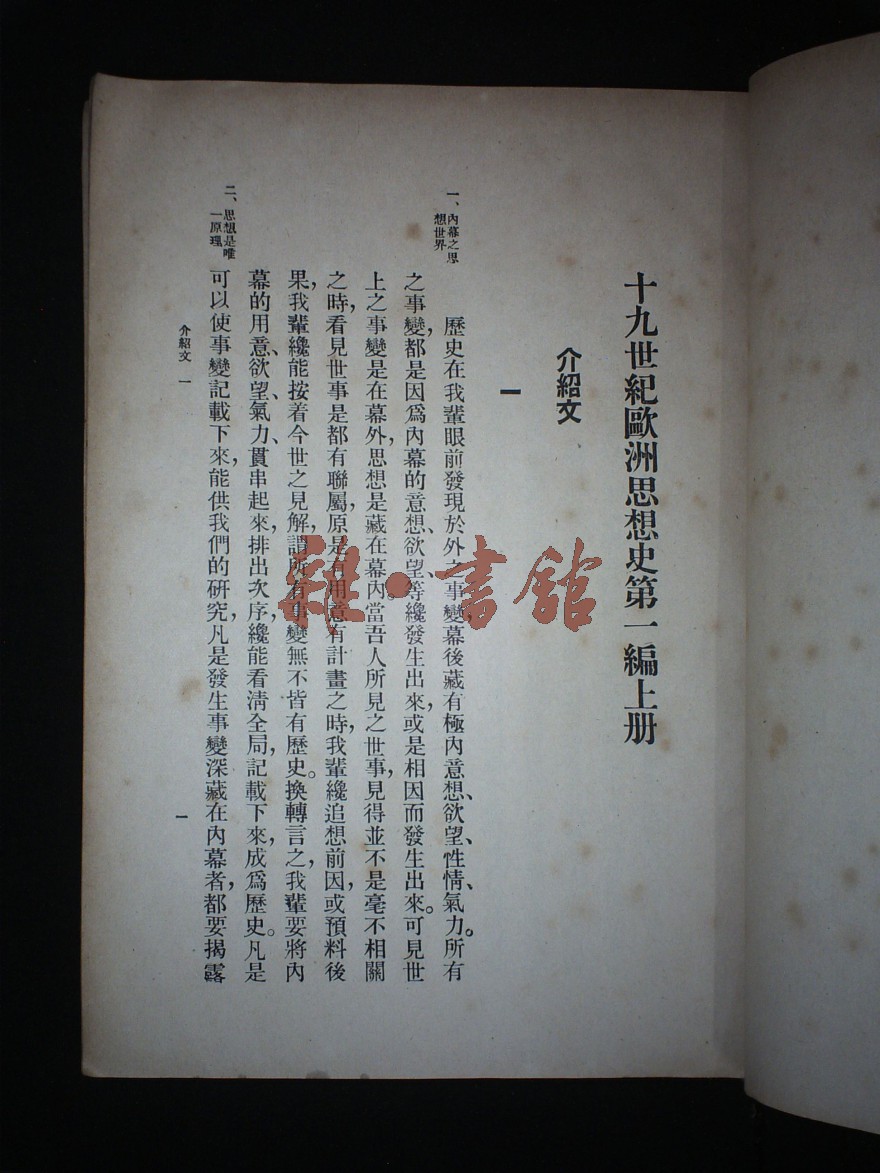 十九世紀歐洲思想史第一編上册
介紹文
一
一、內幕之思
想世界
歷史在我輩眼前發現於外之事變,幕後藏有極內意想、欲望、性情、氣力。所有
之事變,都是因爲內幕的意想、欲望、等纔發生出來,或是相因而發生出來。可見世
上之事變是在幕外,思想是藏在幕內。當吾人所見之世事,見得並不是毫不相關
之時,看見世事是都有聯屬,原是有用意有計畫之時,我輩纔追想前因,或預料後
果,我輩纔能按着今世之見解,謂所有事變無不皆有歷史。換轉言之,我輩要將內
幕的用意、欲望、氣力、貫串起來,排出次序,纔能看淸全局,記載下來,成爲歷史。凡是
二、思想是唯
一原理
可以使事變記載下來,能供我們的研究,凡是發生事變深藏在內幕者,都要揭露
介紹文 一
一
雜·書館